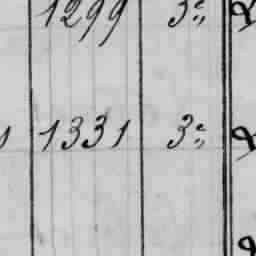 1299 3e
1331 3e